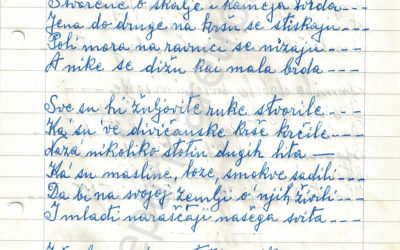 Stvorene o škalje i kamenja tvrda---
Jena do druge na kršu se stiskaju---
Poli mora na ravnici se nižaju---
A nike se dižu kai mala brda---
Sve su hi žuljovite ruke stvorile---
Ka su 've divičanske krše krčile---
Naza nikoliko stotin dugih lita—
Ka su masline, loze, smokve sadili
Da bi na svojoj zemlji o' njih živili
I mladi naraščaji našega svita---